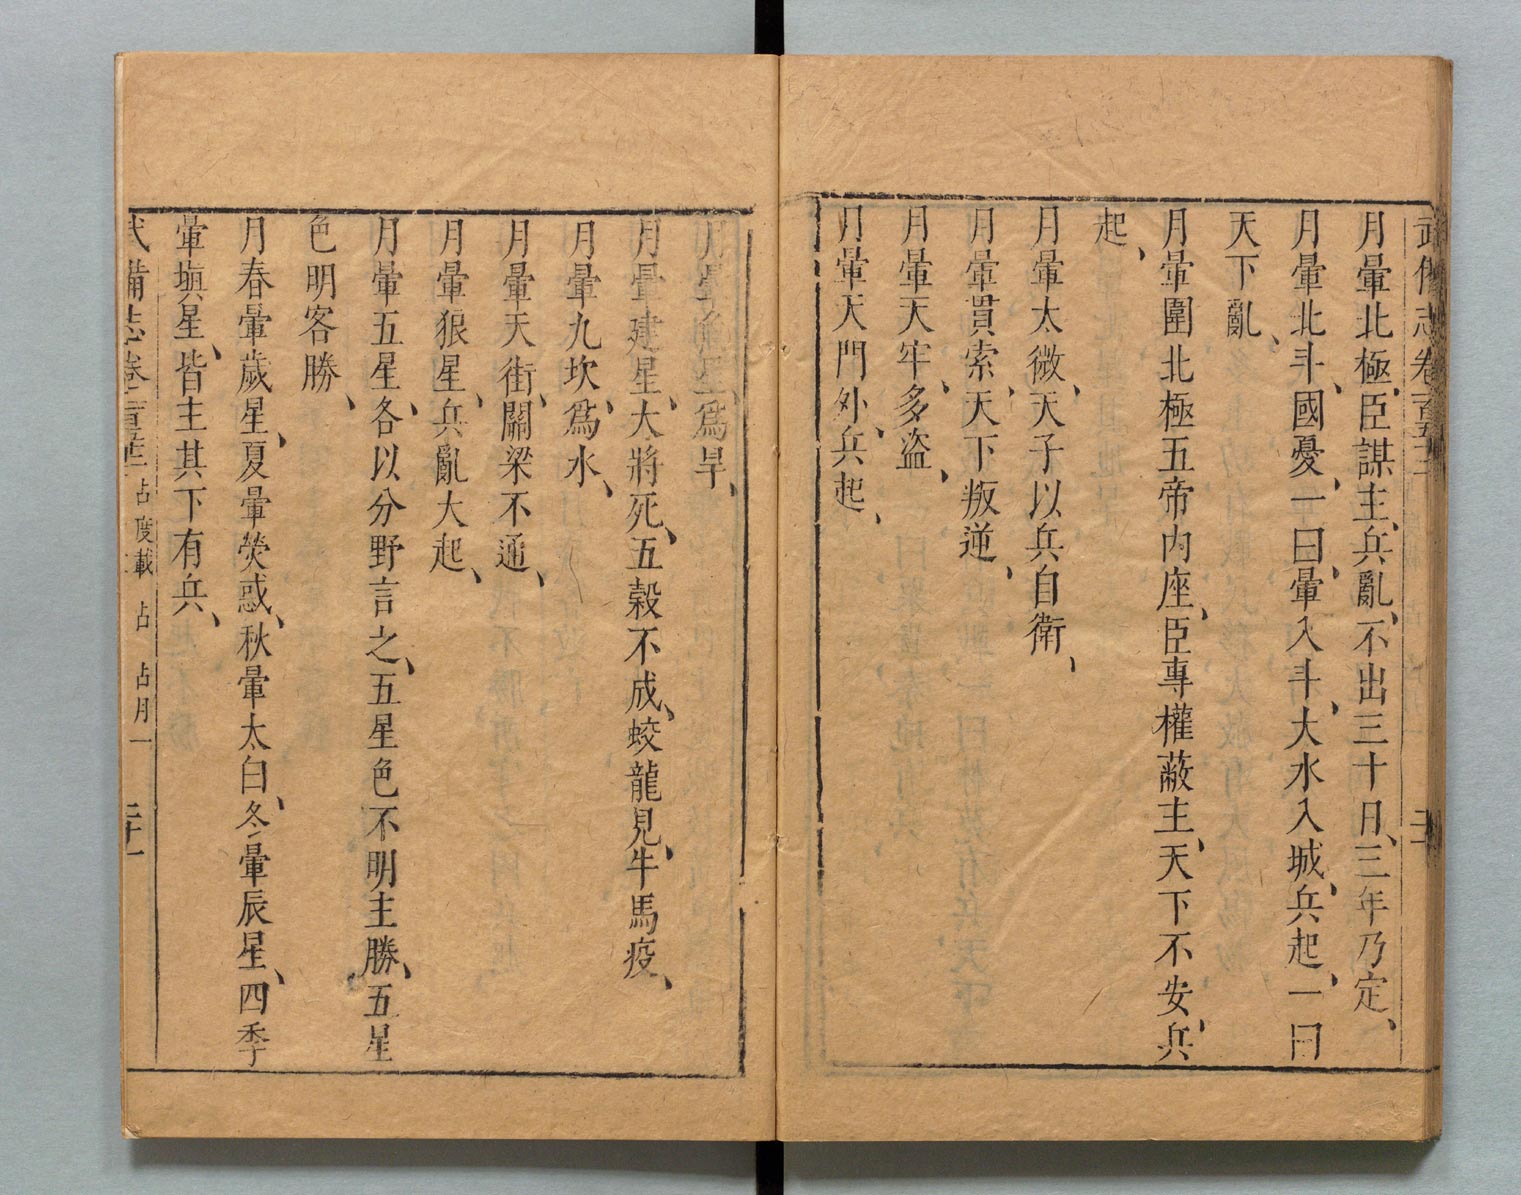 武備志卷一百五十二
月暈北極、臣謀主、兵亂、不出三十日、三年乃定、
月暈北斗、國憂、一曰、暈入斗、大水入城、兵起、一曰
天下亂、
月暈圍北極五帝內座、臣專權蔽主、天下不安、兵
起、
月暈太微、天子以兵自衛、
月暈貫索、天下叛逆、
月暈天牢、多盜、
月暈天門外、兵起、
月暈 爲旱、
月暈建星、大將死、五穀不成、蛟龍見、牛馬疫、
月暈九坎、爲水、
月暈天街、關梁不通、
月暈狼星、兵亂大起、
月暈五星、各以分野言之、五星色不明主勝、五星
色明客勝、
月春暈歲星、夏暈熒惑、秋暈太白、冬暈辰星、四季
暈塡星、皆主其下有兵、
武備志卷 占度載 占 占月一